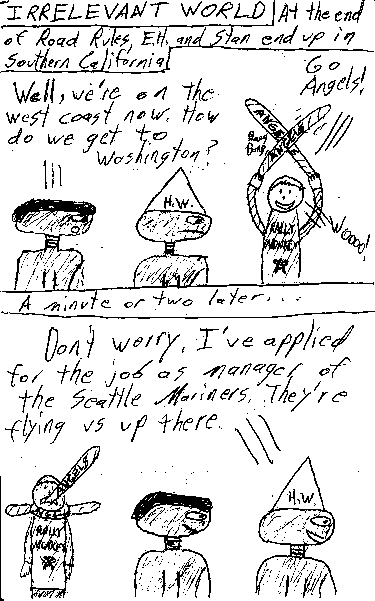 IRRELEVANT WORLD At the end
of Road Rules, E.H. and Stan end up in
Southern California!
Go
Angels!
Well, we're on the
west coast now. How
do we get to
Washington?
ANGELS
Bang
Bang
H.W.
Woooo!
RALLY
MONKEY
A minute or two later...
Don't worry, I've applied
for the job as manager of
the Seattle Mariners. They're
flying us up there.
ANGELS
H.W.
RALLY
MONKEY